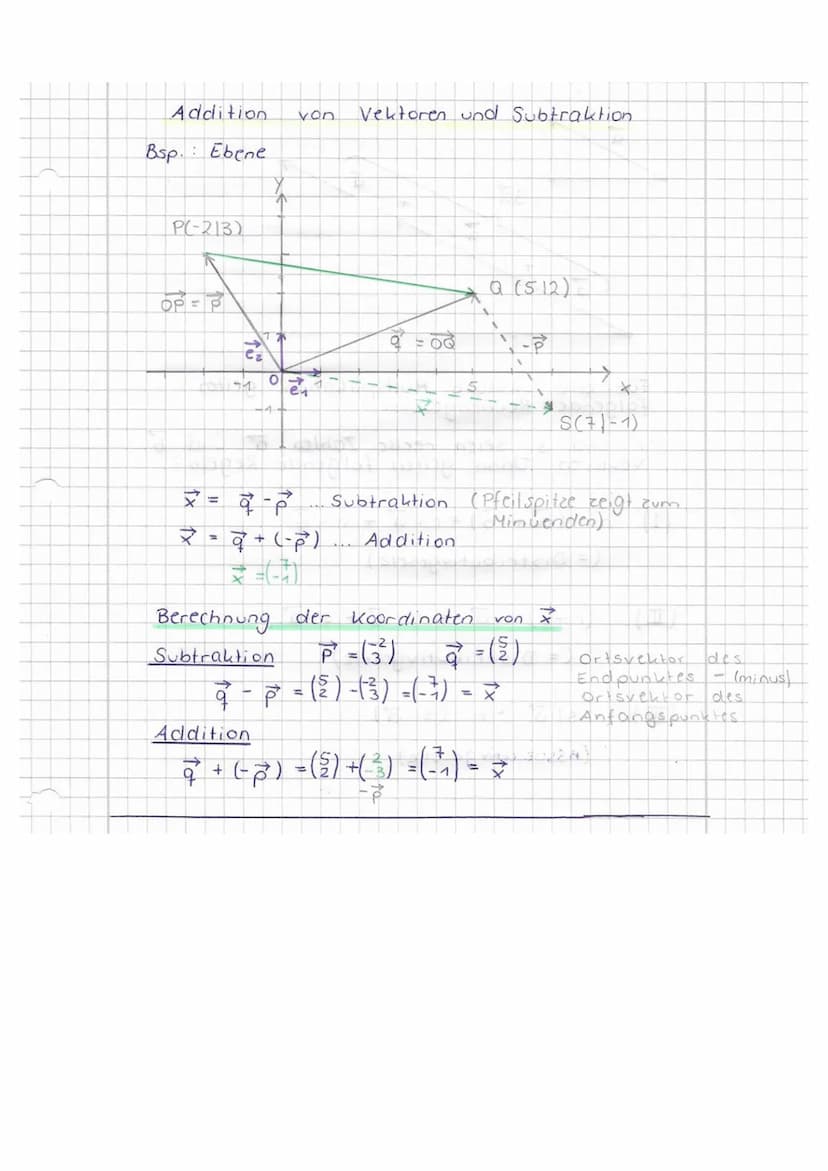 Addition von Vektoren und Subtraktion
Bsp.: Ebene
y
P(-2|3)
Q (5|2)
→OP = →p
→q = →OQ
-→p
1
→e₂
-1 0 →e₁ 1 5 x
-1
→x
S(7|-1)
→x = →q - →p ... Subtraktion (Pfeilspitze zeigt zum
Minuenden)
→x = →q + (-→p) ... Addition
→x = (7 -1)
Berechnung der Koordinaten von →x
Subtraktion →p = (-2 3) →q = (5 2)
→q - →p = (5 2) - (-2 3) = (7 -1) = →x
Ortsvektor des
Endpunktes - (minus)
Ortsvektor des
Anfangspunktes
Addition
→q + (-→p) = (5 2) + (2 -3) = (7 -1) = →x
-→p